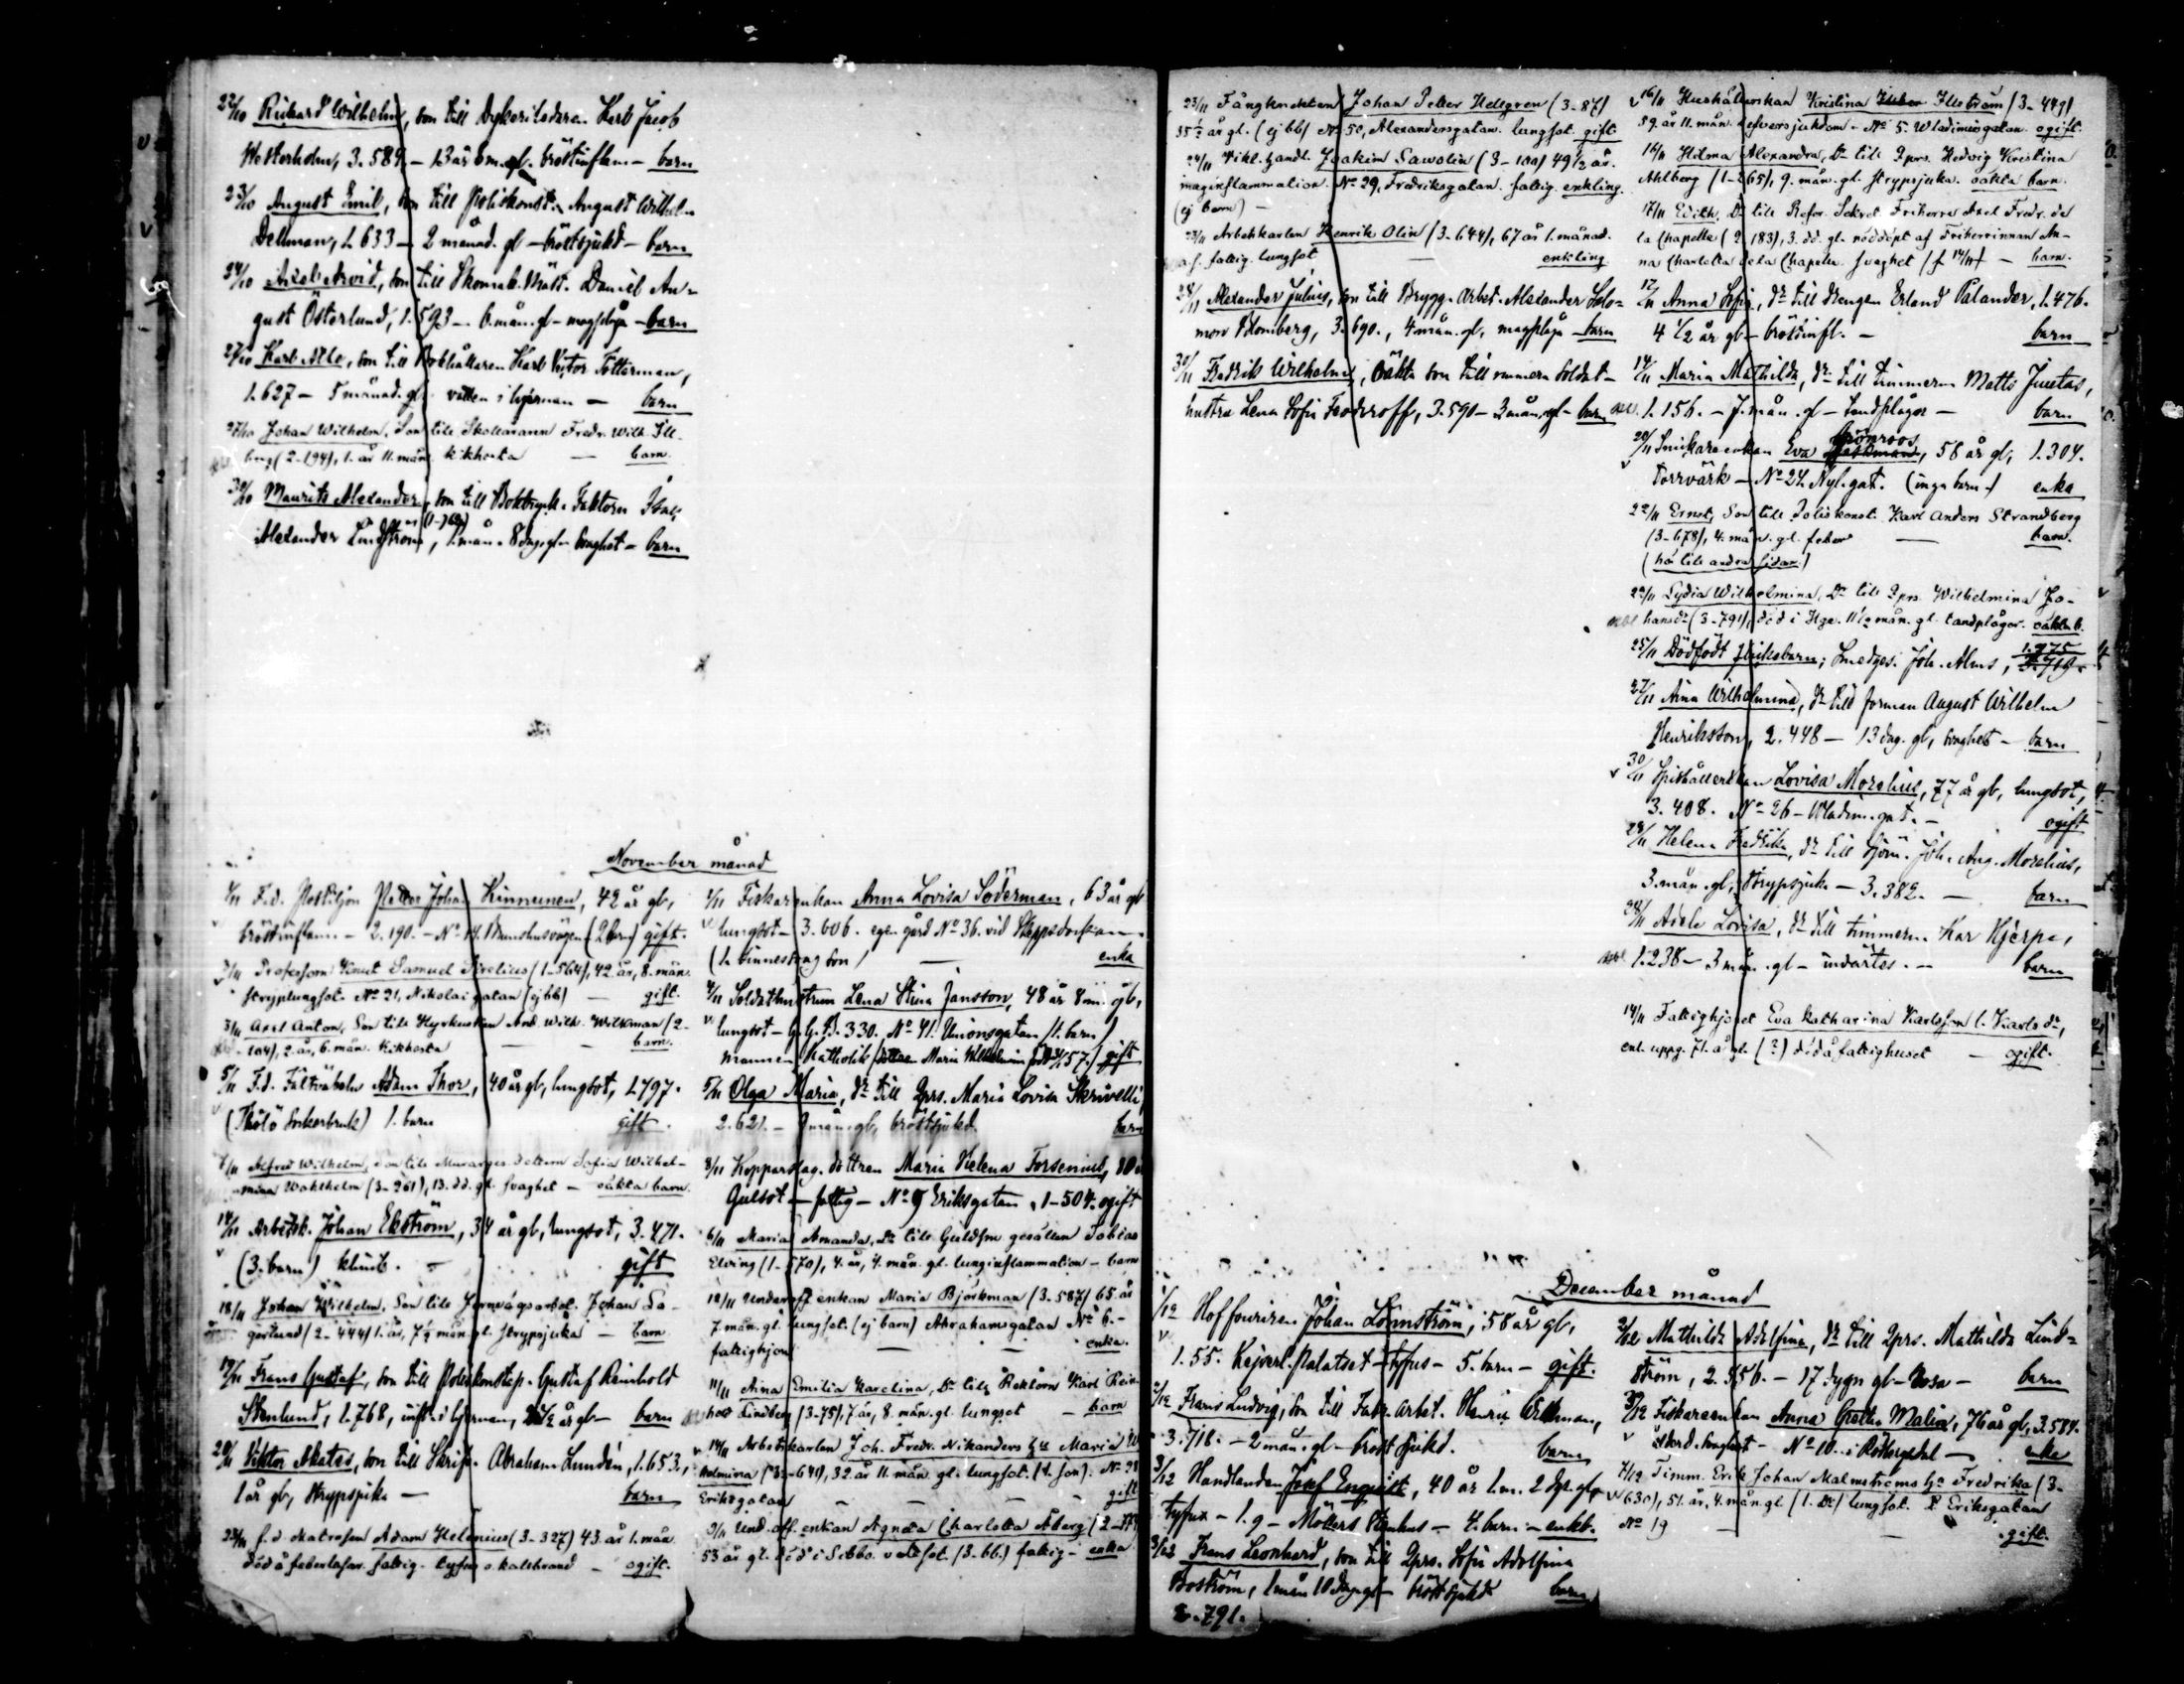 22/10 Rickard Wilhelm, son till Dykeriledaren Karl Jacob
Westerholm, 3.589 - 13 år 8 m. gl. bröstinflam - barn
23/10 August Emil, son till Poliskonst. August Wilhelm
Dellman, 1.633 - 2 månad. gl - bröstsjukd - barn
24/10 Axel Arvid, son till Skomak. Mäst. Daniel Au-
gust Österlund, 1.593 - 6. mån. gl - magplåga - barn
27/10 Karl Atle, son till Bokhållaren Karl Victor Totterman,
1.627 - 5 månad. gl. vatten i hjernan - barn
27/10 Johan Wilhelm, Son till Skolläraren Fredr. Wilh. Ill-
berg (2-194), 1. år 11. mån. kikhosta - barn.
30/10 Maurits Alexander, son till Boktryck. Faktorn
Alexander Lindström, 1 mån. 8 dag. gl - svaghet - barn
November månad
1/11 F.d. Postiljon Petter Johan Kinnunen, 42 år gl,
bröstinflam - 2.190. - No 14. Brunshusvägen (2 barn) gift.
3/11 Professorn Knut Samuel Sirelius (1-564), 42. år, 8. mån.
stryplungsot. No 21, Nikolaigatan (ej bb) - gift.
3/11 Axel Anton, Son till Hyrkusken And. Wilh. Wilkman (2-
104), 2. år, 6. mån. Kikhosta - barn.
5/11 F.d. Fältväbeln Adam Thor, 40 år gl, lungsot, 1.797.
(Thölö Sockerbruk) 1. barn gift.
Alfred Wilhelm, son till Murarges. dottern Sofia Wilhel-
mina Wahlholm (3-261), 13. dd. gl. svaghet - oäkta barn.
14/11 Arbetsk. Johan Ekström, 34 år gl, lungsot, 3.471.
(3. barn) klinik. - gift
18/11 Johan Wilhelm, Son till Jernvägsarbet. Johan La-
gerlund (2-444) 1. år, 7 1/2 mån. gl. strypsjuka - barn.
19/11 Frans Gustaf, son till Poliskonstap. Gustaf Reinhold
Stenlund, 1.768, infl. i hjernan, 1/2 år gl - barn
20/11 Viktor Akates, son till Skrifv. Abraham Lundén, 1.653.,
1 år gl, strypsjuka - barn
23/11 f.d. Matrosen Adam Helenius (3-327) 43 år 1. mån
död å feberlasar. fattig. tyfus o. kallbrand - ogift.
1/11 Fiskarenkan Anna Lovisa Söderman, 63 år gl
lungsot - 3.606. egen gård No 36. vid Skeppsdockan
(1. sinnessvag son) - enka
4/11 Soldathustrun Lena Stina Jansson, 48 år 8 m. gl,
lungsot - G.G.B. 330. No 41. Unionsgatan (1. barn)
mannen Katholik gift
5/11 Olga Maria, dr till Qprs. Maria Lovisa Skrivelli
2.621. - mån. gl, bröstsjukd. barn
8/11 Kopparslag. dottren Maria Helena Forsenius, 80 å
Gulsot - fattig - No 9 Eriksgatan, 1-504. ogift
6/11 Maria Amanda, Dr till Guldsm. gesällen Tobias
Elving (1-570), 4. år, 4. mån. gl. lunginflammation - barn
12/11 Underoff. enkan Maria Björkman (3.587) 65 år
7. mån. gl. lungsot. (ej barn) Abrahamsgatan No 6. -
fattighjon - enka.
11/11 Aina Emilia Karolina, Dr till Rektorn Karl Rein-
hold Lindberg (3-75), 7 år, 8. mån. gl. lungsot - barn
14/11 Arbetskarlen Joh. Fredr. Nikanders hu Maria W
helmina (3-641), 32. år 11. mån. gl. lungsot. (1. son). No 28
Eriksgatan - gift
9/11 Und. off. enkan Agneta Charlotta Åberg (2-
53 år gl. död i Sibbo. vattsot. (3. bb.) fattig - enka
23/11 Fångknekten Johan Petter Hellgren (3-87)
35 1/2 år gl. (ej bb) No 50, Alexandersgatan. lungsot. gift
24/11 Vikt. handl. Joakim Sawolin (3-100) 49 1/2 år.
maginflammation. No 29, Fredriksgatan. fattig. enkling.
(ej barn) -
23/11 Arbetskarlen Henrik Olin (3-644), 67 år 1. månad.
fattig. lungsot - enkling
28/11 Alexander Julius, son till Brygg. Arbet. Alexander Salo-
mon Blomberg, 3.690., 4 mån. gl, magplåga - barn
30/11 Fredrik Wilhelm, oäkta son till ryssen Soldat-
hustru Lena Sofia Feodoroff, 3.590 - 3 mån. gl - barn
16/11 Hushållerskan Kristina Illström (3-449)
59. år 11. mån. lefversjukdom - No 5. Wladimirsgatan. ogift.
16/11 Hilma Alexandra, Dr till Qprs. Hedvig Kristina
Ahlberg (1-265), 9. mån. gl. strypsjuka. oäkta barn.
17/11 Edith, Dr till Refer. Sekret. Friherre Axel Fredr. de
la Chapelle (2.183), 3. dd. gl. nöddöpt af Friherrinnan An-
na Charlotta de la Chapelle. svaghet (f. 14/11) - barn.
17/11 Anna Sofia, dr till drängen Erland Palander, 1.476.
4 1/2 år gl - bröstinfl. - barn
14/11 Maria Mathilda, dr till timmerm Matts Juutas,
1.156. - 7. mån. gl - tandplågor - barn
20/11 Snickareenkan Eva Grönroos, 58 år gl, 1.304.
Torrvärk - No 24. Nyl. gat. (inga barn) enka
22/11 Ernst, Son till Poliskonst. Karl Anders Strandberg
(3-678), 4. mån. gl. feber - barn.
(hör till andra sidan)
22/11 Lydia Wilhelmina, Dr till Qprs. Wilhelmina Jo-
hansdr (3-791), död i Hga. 11 1/2 mån. gl. tandplågor. oäkta b.
25/11 Dödfödt flickebarn; Smedges. Joh. Alms, 1.275
27/11 Aina Wilhelmina, dr till forman August Wilhelm
Henriksson, 2.448 - 13 dag. gl, svaghet - barn
30/11 Spishållerskan Lovisa Morelius, 77 år gl, lungsot,
3.408. No 26 - Wladim. gat. - ogift
28/11 Helena Fredrika, dr till Sjöm. Joh. Aug. Morelius,
3. mån. gl, strypsjuk. - 3.382. - barn
28/11 Adele Lovisa, dr till timmerm. Kar Hjerpe,
1.238 - 3 mån. gl - invärtes. - barn
14/11 Fattighjonet Eva Katharina Karlsson l. Karlsdr,
enl. uppg. 71. år gl. (?) död å fattighuset - ogift.
December månad
1/12 Hoffouriren Johan Lönnström, 58 år gl,
1.55. Kejserl. palatset - tyfus - 5. barn - gift.
2/12 Frans Ludvig, son till Fabr. arbet. Henric Wikman,
3.718. - 2 mån. gl - bröstsjukd. barn
3/12 Handlanden Josef Enqvist, 40 år 1 m. 2 dgr. gl,
tyfus - 1.9 - Möllers Stenhus - 4. barn - enkl.
3/12 Frans Leonhard, son till Qprs. Sofia Adolfina
Boström, 1 mån 10 dag. gl - bröstsjukd barn
2.791.
2/12 Mathilda Adolfina, dr till Qprs. Mathilda Lind-
ström, 2.356. - 17 dygn gl - Rosa - barn
3/12 Fiskareenkan Anna Greta Malin, 76 år gl, 3.584.
ålderd. svaghet - No 10. i Rödbergedal - enka
7/12 Timm. Erik Johan Malmströms hu Fredrika (3-
630), 51. år, 4. mån. gl (1. Dr) lungsot. L. Eriksgatan
No 19 - gift.